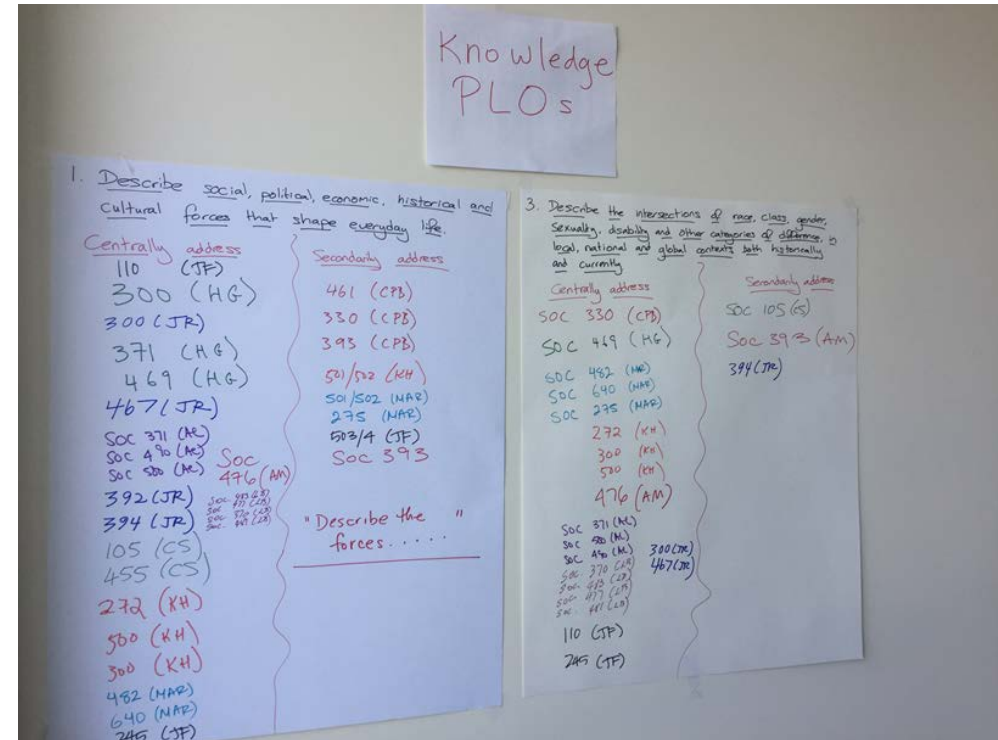 Knowledge
PLOs
1. Describe social, political, economic, historical and
cultural forces that shape everyday life.
Centrally address
110 (JF)
300 (HG)
300 (JR)
371 (HG)
469 (HG)
467 (JR)
SOC 371 (AL)
SOC 490 (AL)
SOC 500 (AL)
Soc
476 (AM)
392 (JR)
394 (JR)
105 (CS)
455 (CS)
272 (KH)
500 (KH)
300 (KH)
482 (MAR)
640 (MAR)
245 (JF)
Secondarily address
461 (CPB)
330 (CPB)
393 (CPB)
501/502 (KH)
501/502 (MAR)
275 (MAR)
503/4 (JF)
Soc 393
"Describe the "
forces.....
3. Describe the intersections of race, class, gender,
sexuality, disability and other categories of difference, in
legal, national and global contexts both historically
and currently
Centrally address
SOC 330 (CPB)
SOC 469 (HG)
SOC 482 (MAR)
SOC 640 (MAR)
SOC 275 (MAR)
272 (KH)
300 (KH)
500 (KH)
476 (AM)
SOC 371 (AL)
SOC 500 (AL)
SOC 490 (AL)
300 (JR)
467 (JR)
Soc 370 (LB)
Soc 483 (LB)
Soc 477 (LB)
Soc
110 (JF)
245 (JF)
Secondarily address
SOC 105 (CS)
Soc 393 (AM)
394 (JR)